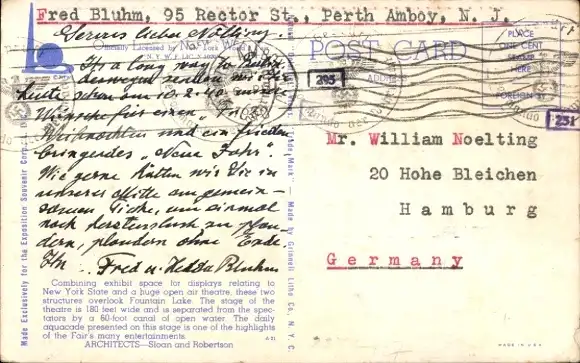 Fred Bluhm, 95 Rector St., Perth Amboy, N. J.
Servus lieber Nölting.
Officially Licensed by New York World's
POST CARD
PLACE
ONE CENT
STAMP
HERE
FOREIGN
It's a long way to
deswegen senden wir
heute schon am 10.2.40 unsere
Wünsche für einen
Weihnachten und ein frieden
bringendes "Neue Jahr".
Wie gerne hätten wir Sie in
unserer Mitte am gemein-
samen Tische, um einmal
nach herzenslust zu plau
dern, plaudern ohne Ende
Ihr Fred u. Hedda Bluhm
295
251
Mr. William Noelting
20 Hohe Bleichen
Hamburg
Germany
Combining exhibit space for displays relating to
New York State and a huge open air theatre, these two
structures overlook Fountain Lake. The stage of the
theatre is 180 feet wide and is separated from the spec-
tators by a 60-foot canal of open water. The daily
aquacade presented on this stage is one of the highlights
of the Fair's many entertainments.
ARCHITECTS—Sloan and Robertson
Made Exclusively for the Exposition Souvenir Corp.
Trade Mark" — Made by Grinnell Litho Co. N. Y. C.
MADE IN U.S.A.